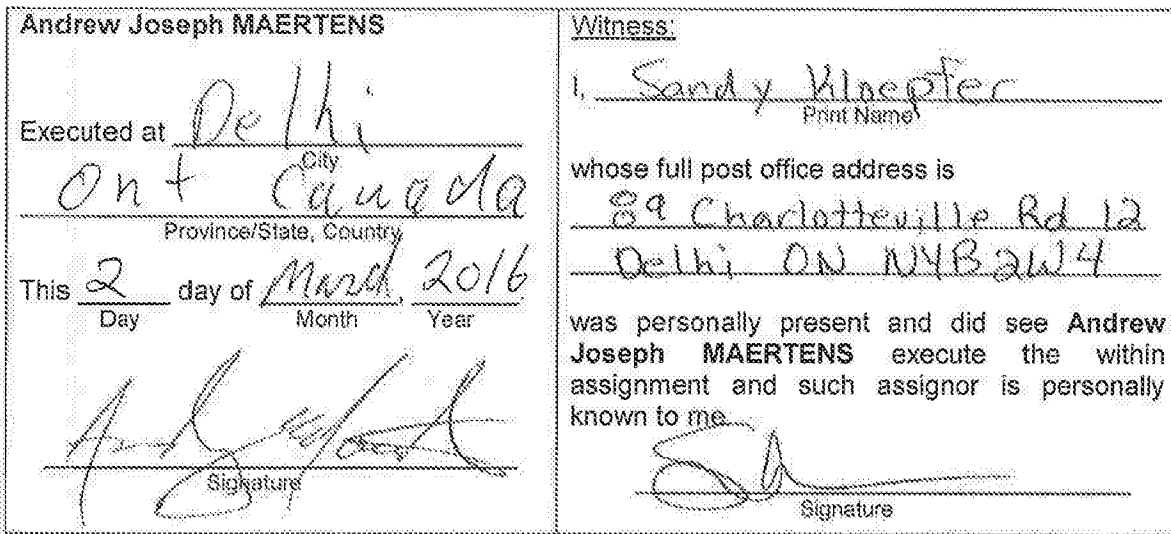 Andrew Joseph MAERTENS
Executed at Delhi
City
Ont Canada
Province/State, Country
This 2 day of March, 2016
Day Month Year
Signature
Witness:
I, Sandy Kloepfer
Print Name
whose full post office address is
89 Charlotteville Rd 12
Delhi ON N4B2W4
was personally present and did see Andrew
Joseph MAERTENS execute the within
assignment and such assignor is personally
known to me.
Signature